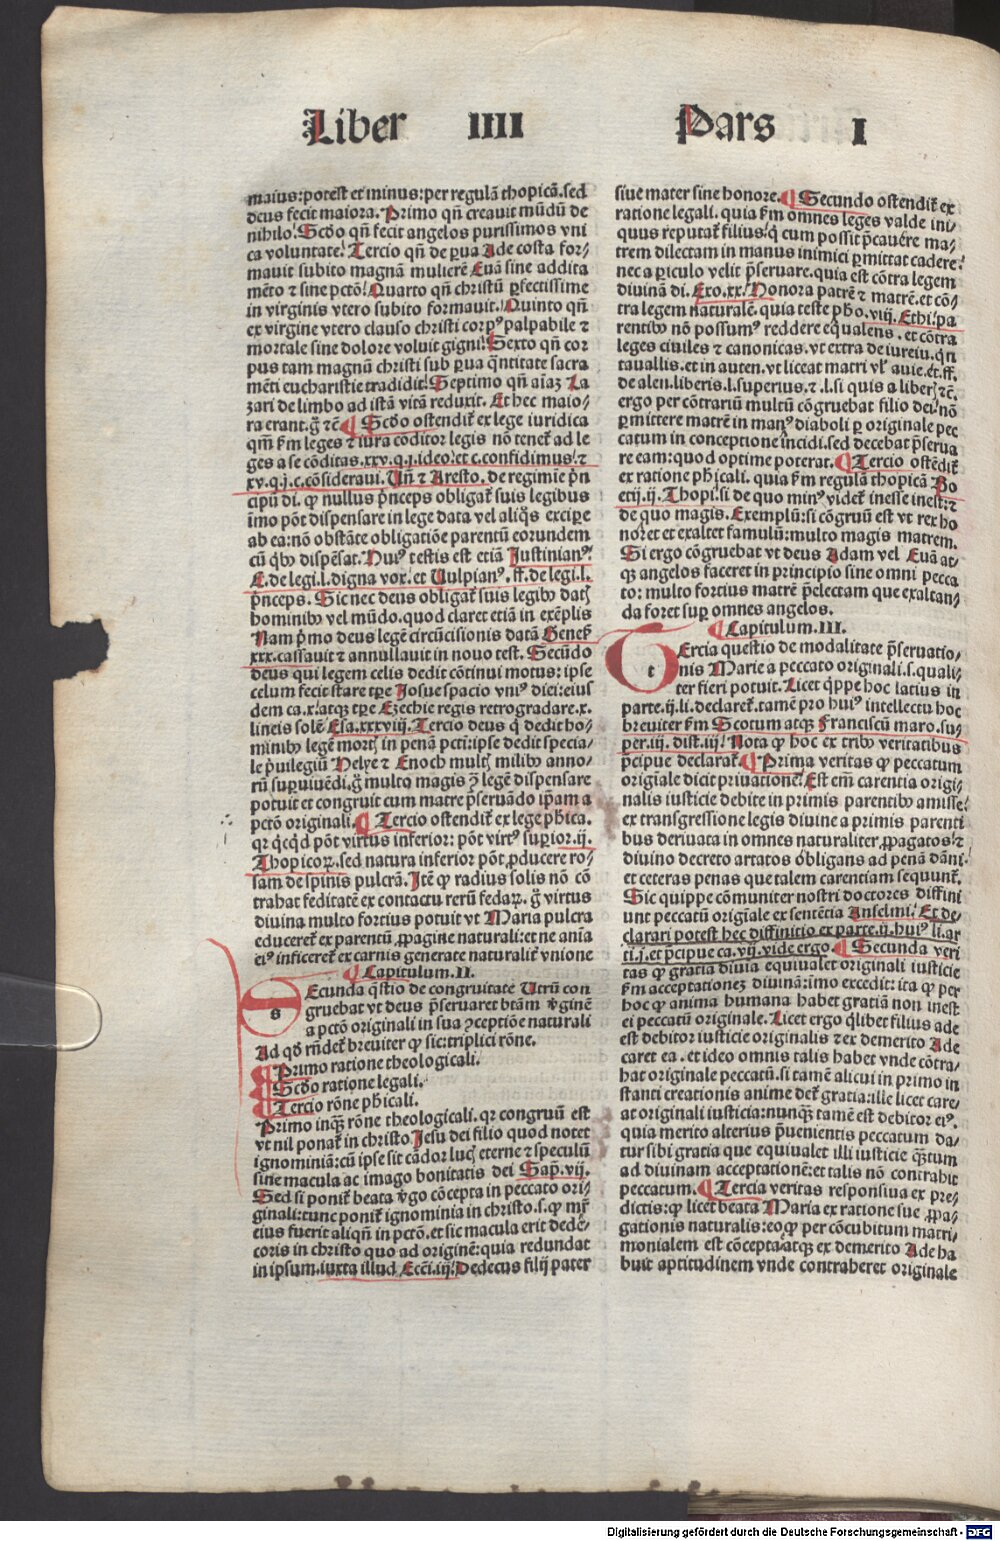 Liber IIII Pars I
maius:potest et minus:per regulā thopicā.sed
deus fecit maiora. Primo qn̄ creauit mūdū de
nihilo. Scd̄o qn̄ fecit angelos purissimos vni
ca voluntate. Tercio qn̄ de parua Ade costa for/
mauit subito magnā mulierē Euā sine addita
mēto ⁊ sine pctō. Quarto qn̄ christū ꝑfectissime
in virginis vtero subito formauit. Quinto qn̄
ex virgine vtero clauso christi corpꝰ palpabile ⁊
mortale sine dolore voluit gigni. Sexto qn̄ cor
pus tam magnū christi sub parua qn̄titate sacra
mēti eucharistie tradidit. Septimo qn̄ aīaꝫ La
zari de limbo ad istā vitā reduxit. Et hec maio/
ra erant.g̊ ⁊c̄ ¶ Scd̄o ostendit̄ ex lege iuridica
qm̄ ẜm leges ⁊ iura cōditor legis nō tenet̄ ad le
ges a se cōditas.xxv.q.j.ideo.et c.confidimus.⁊
xv.q.j.c.cōsideraui. Vn̄ ⁊ Aresto.de regimīe p̄n
cipū di. ꝙ nullus p̄nceps obligat̄ suis legibus
īmo pōt dispensare in lege data vel aliq̄s excipe
ab ea:nō obstāte obligatiōe parentū eorundem
cū q̄bꝰ dispēsat. Huiꝰ testis est etiā Justinianꝰ.
C.de legi.l.digna vox.et Vulpianꝰ.ff.de legi.l.
p̄nceps. Sic nec deus obligat̄ suis legibꝰ datꝭ
hominibꝰ vel mūdo.quod claret etiā in exēplis
Nam p̄mo deus legē circūcisionis datā Geneẜ
xxx.cassauit ⁊ annullauit in nouo test. Secūdo
deus qui legem celis dedit cōtinui motus:ipse
celum fecit stare tꝑe Josue spacio vniꝰ diei:eius
dem ca.x.atqꝫ tꝑe Ezechie regis retrogradare.x.
lineis solē. Esa.xxxviij. Tercio deus q̇ dedit ho/
minibꝰ legē mortꝭ in penā pctī:ipse dedit specia/
le p̄uilegiū Helye ⁊ Enoch multꝭ milibꝰ anno/
rū suꝑuiuēdi.g̊ multo magis ꝯ legē dispensare
potuit et congruit cum matre p̄seruādo ip̄am a
pctō originali. ¶ Tercio ostendit̄ ex lege ph̄ica.
qr q̇cq̇d pōt virtus inferior: pōt virtꝰ superior.ij.
Thopicoꝝ.sed natura inferior pōt ꝓducere ro/
sam de spinis pulcrā. Itē ꝙ radius solis nō cō
trahat feditatē ex contactu rerū fedaꝝ.g̊ virtus
diuina multo fortius potuit vt Maria pulcra
educeret̄ ex parentū ꝓpagine naturali:et ne anīa
eiꝰ inficeret̄ ex carnis generate naturalit̄ vnione
¶ Capitulum.II.
SEcunda q̄stio de congruitate Utrū con
gruebat vt deus p̄seruaret btām v̇ginē
a pctō originali in sua ꝯceptiōe naturali
Ad qd̄ rn̄det̄ breuiter ꝙ sic:triplici rōne.
¶ Primo ratione theologicali.
¶ Scd̄o ratione legali.
¶ Tercio rōne ph̄icali.
Primo inqꝫ rōne theologicali.qr congruū est
vt nil ponat̄ in christo Jesu dei filio quod notet
ignominiā:cū ipse sit cādor lucꝭ eterne ⁊ speculū
sine macula ac imago bonitatis dei Sap̄.vij.
Sed si ponit̄ beata v̇go cōcepta in peccato ori/
ginali:tunc ponit̄ ignominia in christo.s.ꝙ mr̄
eius fuerit aliqn̄ in pctō.et sic macula erit dede/
coris in christo quo ad originē:quia redundat
in ipsum.iuxta illud Ecc̄i.iij. Dedecus filij pater
siue mater sine honore. ¶ Secundo ostendit̄ ex
ratione legali. quia ẜm omnes leges valde ini/
quus reputat̄ filius:q̇ cum possit p̄cauere ma/
trem dilectam in manus inimici ꝑmittat cadere:
nec a ꝑiculo velit p̄seruare.quia est cōtra legem
diuinā di. Exo.xx. Honora patrē ⁊ matrē.et cō/
tra legem naturalē.quia teste ph̄o.viij.Ethi.pa
rentibꝰ nō possumꝰ reddere equalens.et cōtra
leges ciuiles ⁊ canonicas.vt extra de iureiu.qn̄
tauallis.et in auten.vt liceat matri vl̓ auie.et.ff.
de alen.liberis.l.superius.⁊.l.si quis a liberꝭ ⁊c̄.
ergo per cōtrariū multū cōgruebat filio dei:nō
ꝑmittere matrē in manꝰ diaboli ꝑ originale pec
catum in conceptione īncidi.sed decebat p̄serua
re eam:quod optime poterat. ¶ Tercio ostēdit̄
ex ratione ph̄icali. quia ẜm regulā thopicā Bo
etij.ij.Thopi.si de quo minꝰ videt̄ inesse inest:⁊
de quo magis. Exemplū:si cōgruū est vt rex ho
noret et exaltet famulū:multo magis matrem.
Si ergo cōgruebat vt deus Adam vel Euā at/
qꝫ angelos faceret in principio sine omni pecca
to: multo fortius matrē p̄electam que exaltan/
da foret suꝑ omnes angelos.
¶ Capitulum.III.
TErcia questio de modalitate p̄seruatio/
nis Marie a peccato originali.s.quali/
ter fieri potuit. Licet q̇ppe hoc latius in
parte.ij.li.declaret̄.tamē pro huiꝰ intellectu hoc
breuiter ẜm Scotum atqꝫ Franciscū maro.su/
per.iij.dist.iij. Nota ꝙ hoc ex tribꝰ veritatibus
p̄cipue declarat̄. ¶ Prima veritas ꝙ peccatum
originale dicit priuationē. Est em̄ carentia origi/
nalis iusticie debite in primis parentibꝰ amisse:
ex transgressione legis diuine a primis parenti
bus deriuata in omnes naturaliter ꝓpagatos:⁊
diuino decreto artatos obligans ad penā dāni.
et ceteras penas que talem carentiam sequunt̄.
Sic quippe cōmuniter nostri doctores diffini
unt peccatū origīale ex sentētia Anselmi. Et de/
clarari potest hec diffinitio ex parte.ij.huiꝰ li.ar
ti.j.et p̄cipue ca.vij.vide ergo. ¶ Secunda veri
tas ꝙ gratia diuia equiualet originali iusticie
ẜm acceptationeꝫ diuinā:īmo excedit: ita ꝙ per
hoc ꝙ anima humana habet gratiā non inest
ei peccatū originale. Licet ergo q̇libet filius ade
est debitor iusticie originalis ⁊ ex demerito Ade
caret ea.et ideo omnis talis habet vnde cōtra/
hat originale peccatū.si tamē alicui in primo in
stanti creationis anime det̄ gratia:ille licet care/
at originali iusticia:nunqꝫ tamē est debitor eiꝰ.
quia merito alterius p̄uenientis peccatum da/
tur sibi gratia que equiualet illi iusticie qꝫtum
ad diuinam acceptationē:et talis nō contrahit
peccatum. ¶ Tercia veritas responsiua ex pre/
dictis:ꝙ licet beata Maria ex ratione sue ꝓpa/
gationis naturalis:eoqꝫ per cōcubitum matri/
monialem est cōcepta:atqꝫ ex demerito Ade ha
buit aptitudinem vnde contraheret originale
Digitalisierung gefördert durch die Deutsche Forschungsgemeinschaft - DFG